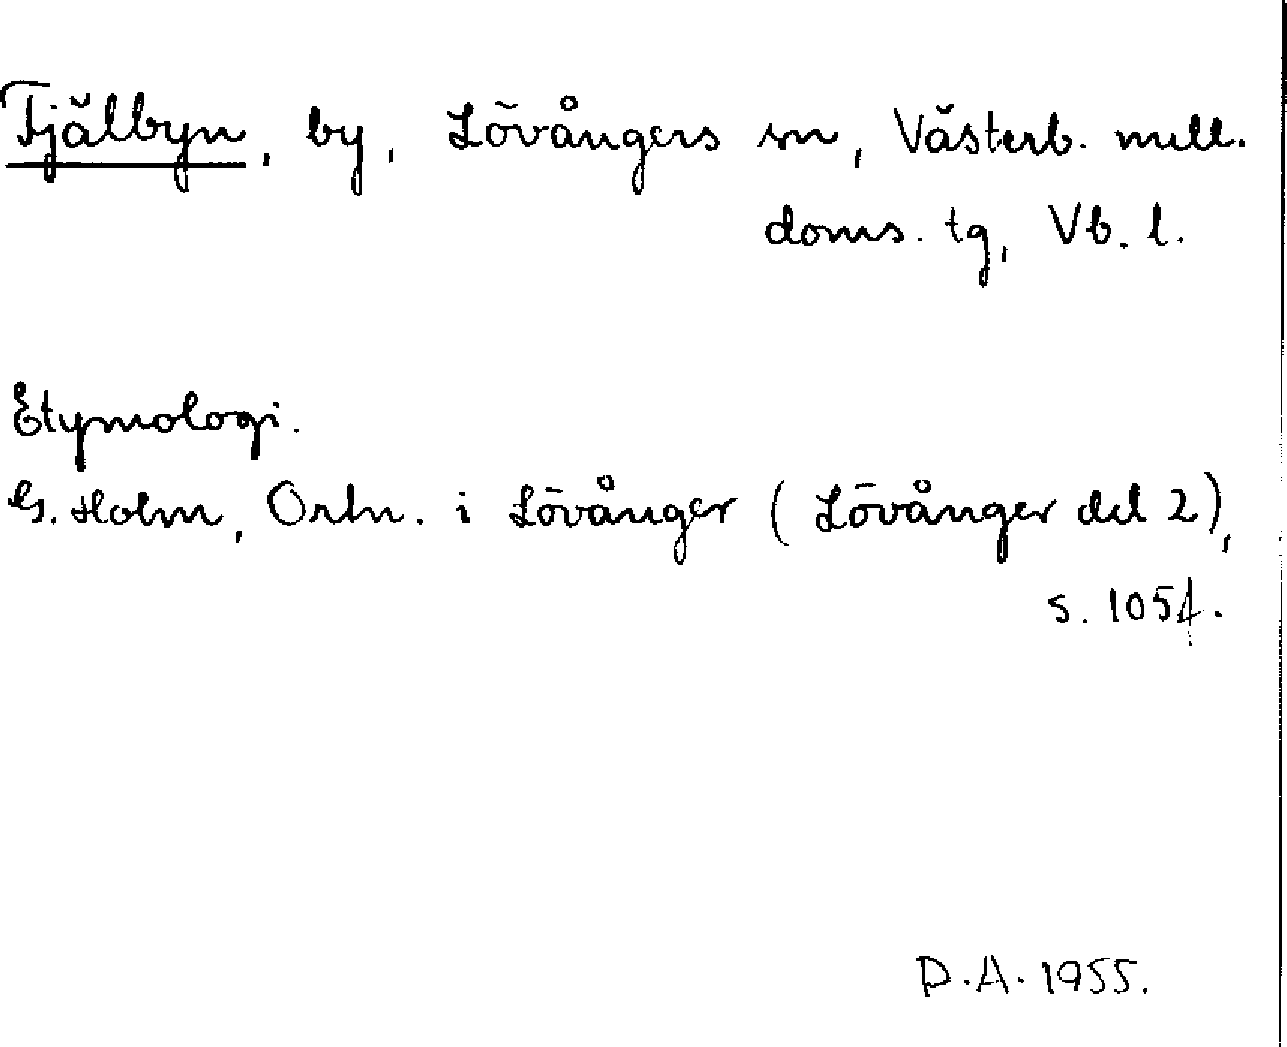 Fjälbyn, by, Lövångers sn, Västerb. mell.
doms. tg, Vb. l.
Etymologi.
G. Holm, Ortn. i Lövånger (Lövånger del 2),
s. 105f.
D.A. 1955.